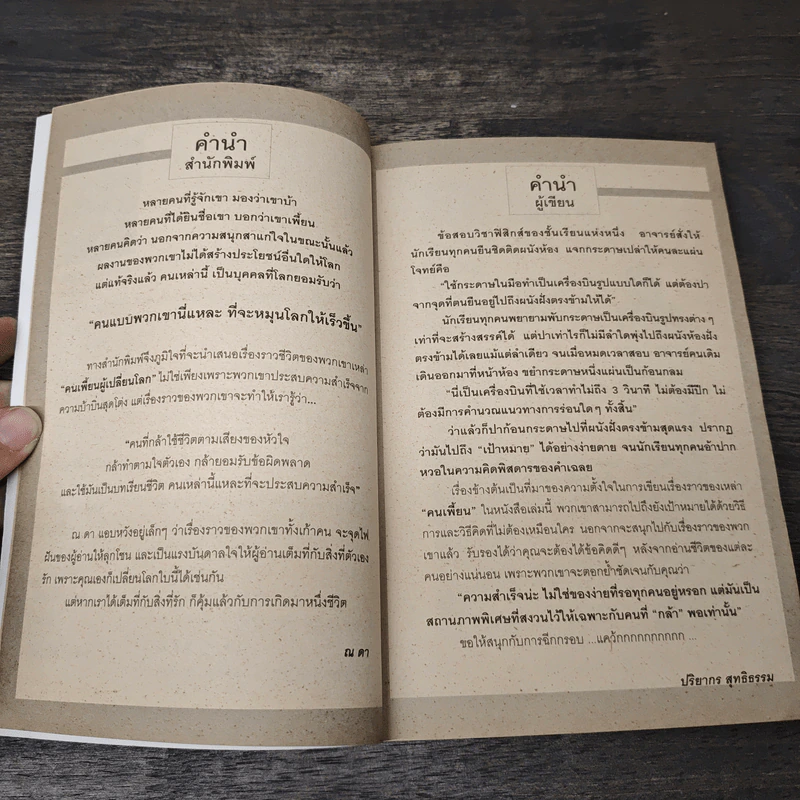 คำนำ
สำนักพิมพ์
หลายคนที่รู้จักเขา มองว่าเขาบ้า
หลายคนที่ได้ยินชื่อเขา บอกว่าเขาเพี้ยน
หลายคนคิดว่า นอกจากความสนุกสาแก่ใจในขณะนั้นแล้ว
ผลงานของพวกเขาไม่ได้สร้างประโยชน์อื่นใดให้โลก
แต่แท้จริงแล้ว คนเหล่านี้ เป็นบุคคลที่โลกยอมรับว่า
"คนแบบพวกเขานี่แหละ ที่จะหมุนโลกให้เร็วขึ้น"
ทางสำนักพิมพ์จึงภูมิใจที่จะนำเสนอเรื่องราวชีวิตของพวกเขาเหล่า
"คนเพี้ยนผู้เปลี่ยนโลก" ไม่ใช่เพียงเพราะพวกเขาประสบความสำเร็จจาก
ความบ้าบิ่นสุดโต่ง แต่เรื่องราวของพวกเขาจะทำให้เรารู้ว่า...
"คนที่กล้าใช้ชีวิตตามเสียงของหัวใจ
กล้าทำตามใจตัวเอง กล้ายอมรับข้อผิดพลาด
และใช้มันเป็นบทเรียนชีวิต คนเหล่านี้แหละที่จะประสบความสำเร็จ"
ณ ดา แอบหวังอยู่เล็กๆ ว่าเรื่องราวของพวกเขาทั้งเก้าคน จะจุดไฟ
ฝันของผู้อ่านให้ลุกโชน และเป็นแรงบันดาลใจให้ผู้อ่านเต็มที่กับสิ่งที่ตัวเอง
รัก เพราะคุณเองก็เปลี่ยนโลกใบนี้ได้เช่นกัน
แต่หากเราได้เต็มที่กับสิ่งที่รัก ก็คุ้มแล้วกับการเกิดมาหนึ่งชีวิต
ณ ดา
คำนำ
ผู้เขียน
ข้อสอบวิชาฟิสิกส์ของชั้นเรียนแห่งหนึ่ง อาจารย์สั่งให้
นักเรียนทุกคนยืนชิดติดผนังห้อง แจกกระดาษเปล่าให้คนละแผ่น
โจทย์คือ
"ใช้กระดาษในมือทำเป็นเครื่องบินรูปแบบใดก็ได้ แต่ต้องปา
จากจุดที่ตนยืนอยู่ไปถึงผนังฝั่งตรงข้ามให้ได้"
นักเรียนทุกคนพยายามพับกระดาษเป็นเครื่องบินรูปทรงต่างๆ
เท่าที่จะสร้างสรรค์ได้ แต่ปาเท่าไรก็ไม่มีลำใดพุ่งไปถึงผนังห้องฝั่ง
ตรงข้ามได้เลยแม้แต่ลำเดียว จนเมื่อหมดเวลาสอบ อาจารย์คนเดิม
เดินออกมาที่หน้าห้อง ขยำกระดาษหนึ่งแผ่นเป็นก้อนกลม
"นี่เป็นเครื่องบินที่ใช้เวลาทำไม่ถึง 3 วินาที ไม่ต้องมีปีก ไม่
ต้องมีการคำนวณแนวทางการร่อนใดๆ ทั้งสิ้น"
ว่าแล้วก็ปาก้อนกระดาษไปที่ผนังฝั่งตรงข้ามสุดแรง ปรากฏ
ว่ามันไปถึง "เป้าหมาย" ได้อย่างง่ายดาย จนนักเรียนทุกคนอ้าปาก
หวอในความคิดพิสดารของคำเฉลย
เรื่องข้างต้นเป็นที่มาของความตั้งใจในการเขียนเรื่องราวของเหล่า
"คนเพี้ยน" ในหนังสือเล่มนี้ พวกเขาสามารถไปถึงยังเป้าหมายได้ด้วยวิธี
การและวิธีคิดที่ไม่ต้องเหมือนใคร นอกจากจะสนุกไปกับเรื่องราวของพวก
เขาแล้ว รับรองได้ว่าคุณจะต้องได้ข้อคิดดีๆ หลังจากอ่านชีวิตของแต่ละ
คนอย่างแน่นอน เพราะพวกเขาจะตอกย้ำชัดเจนกับคุณว่า
"ความสำเร็จน่ะ ไม่ใช่ของง่ายที่รอทุกคนอยู่หรอก แต่มันเป็น
สถานภาพพิเศษที่สงวนไว้ให้เฉพาะกับคนที่ "กล้า" พอเท่านั้น"
ขอให้สนุกกับการฉีกกรอบ ...แคว้กกกกกกกกกก ...
ปริยากร สุทธิธรรม